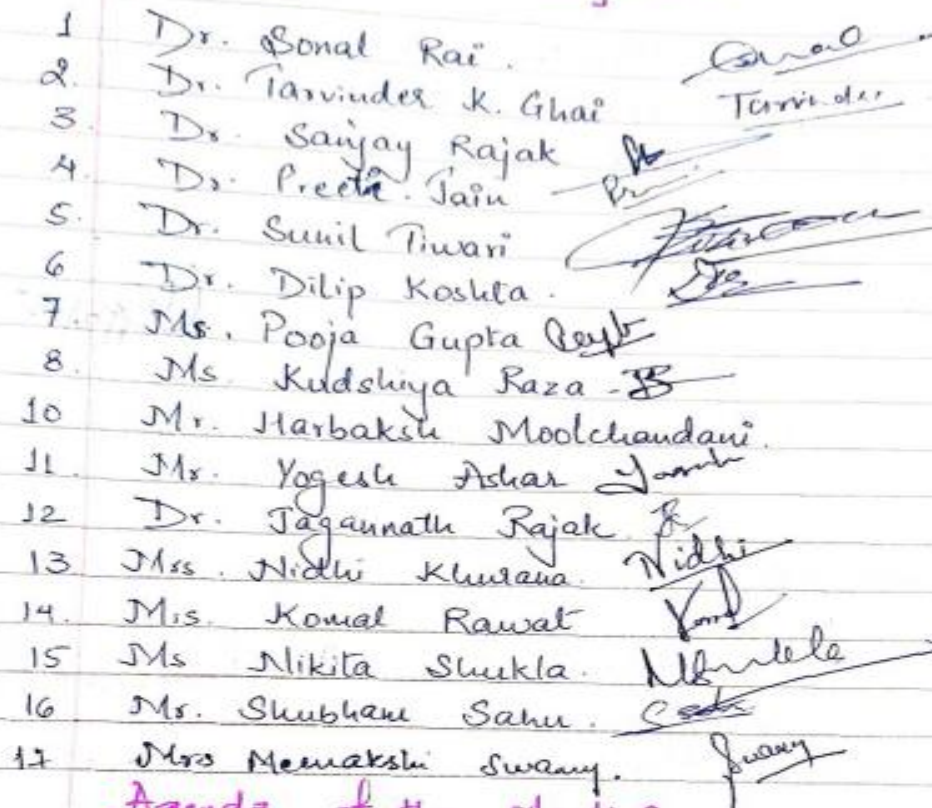 1 Dr. Sonal Rai.
2. Dr. Tarvinder K. Ghai Tarvinder
3. Dr. Sanjay Rajak
4. Dr. Preeti Jain
5. Dr. Sunil Tiwari
6 Dr. Dilip Koshta.
7. Ms. Pooja Gupta
8. Ms. Kudshiya Raza
10 Mr. Harbaksh Moolchandani.
11. Mr. Yogesh Ashar
12 Dr. Jagannath Rajak
13 Mrs. Nidhi Khurana. Nidhi
14. Mis. Komal Rawat
15 Ms Nikita Shukla.
16 Mr. Shubham Sahu.
17 Mrs Meenakshi Swamy. Swamy
Agenda